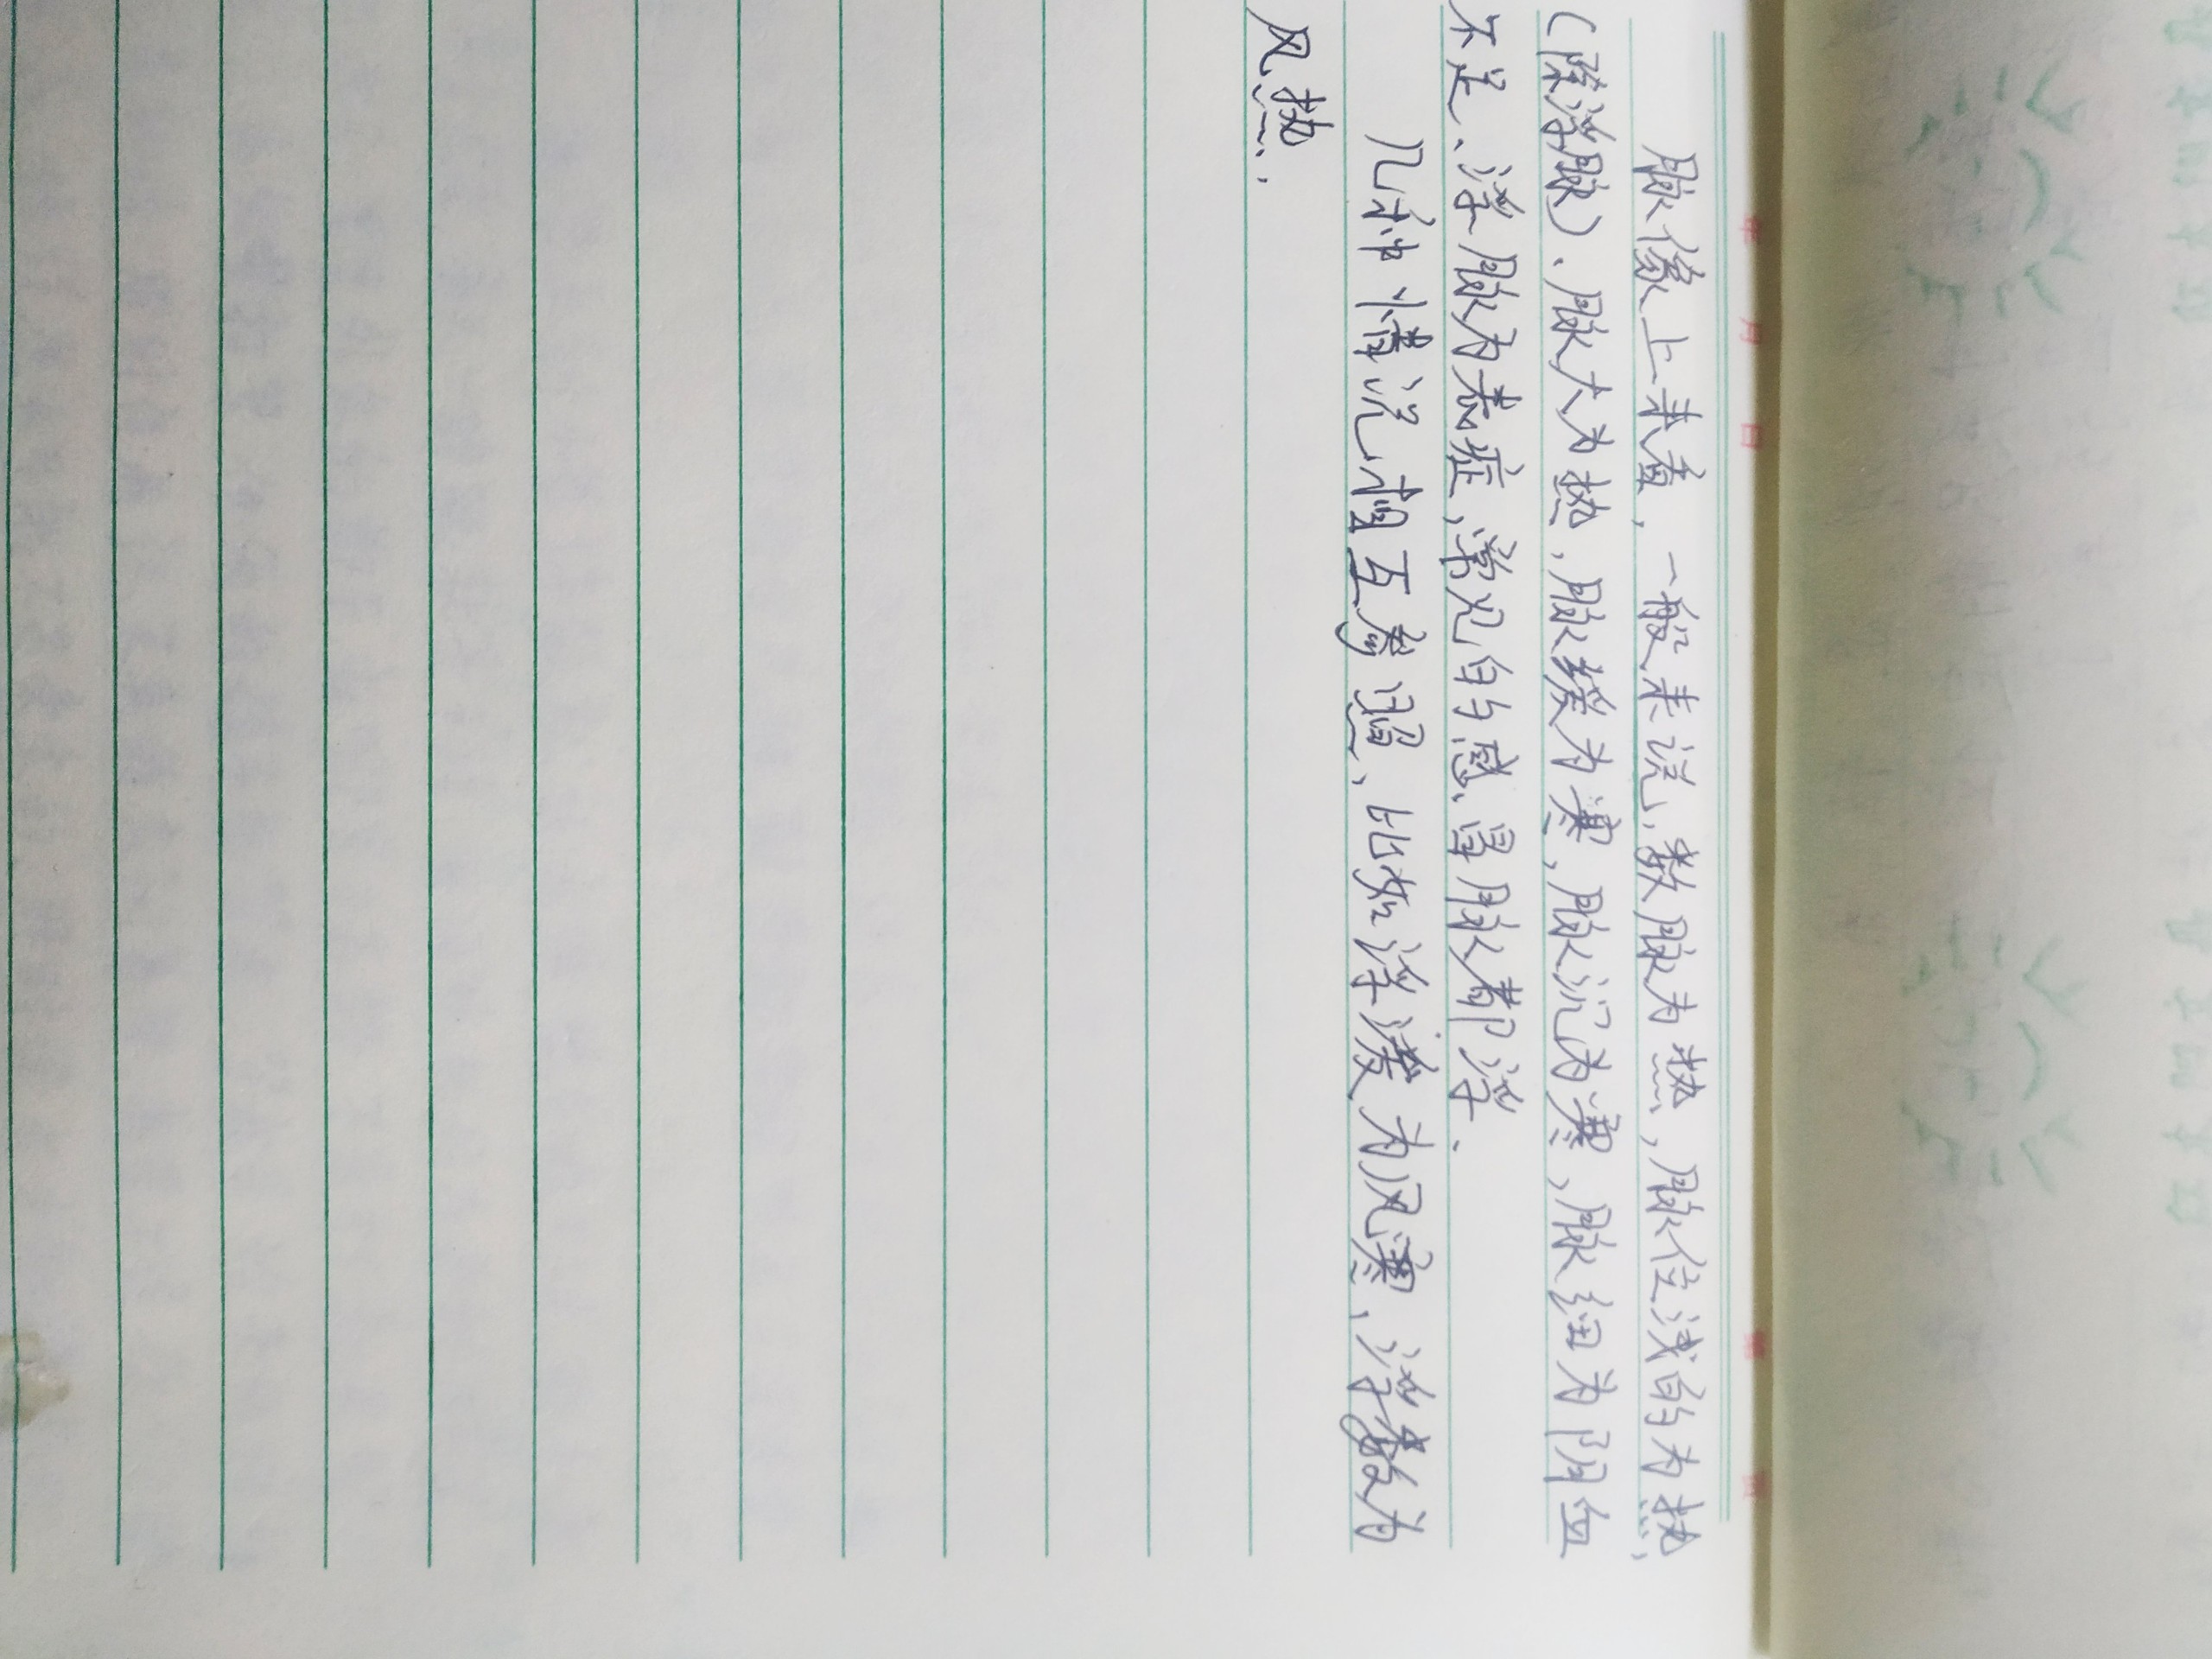 年 月 日
脉像上来看，一般来说，数脉为热，脉位浅的为热，
（除浮脉）、脉大为热，脉缓为寒，脉沉为寒、脉细为阴血
不足、浮脉为表症，常见的感冒脉都浮．
几种情况相互参照、比如浮缓为风寒，浮数为
风热．